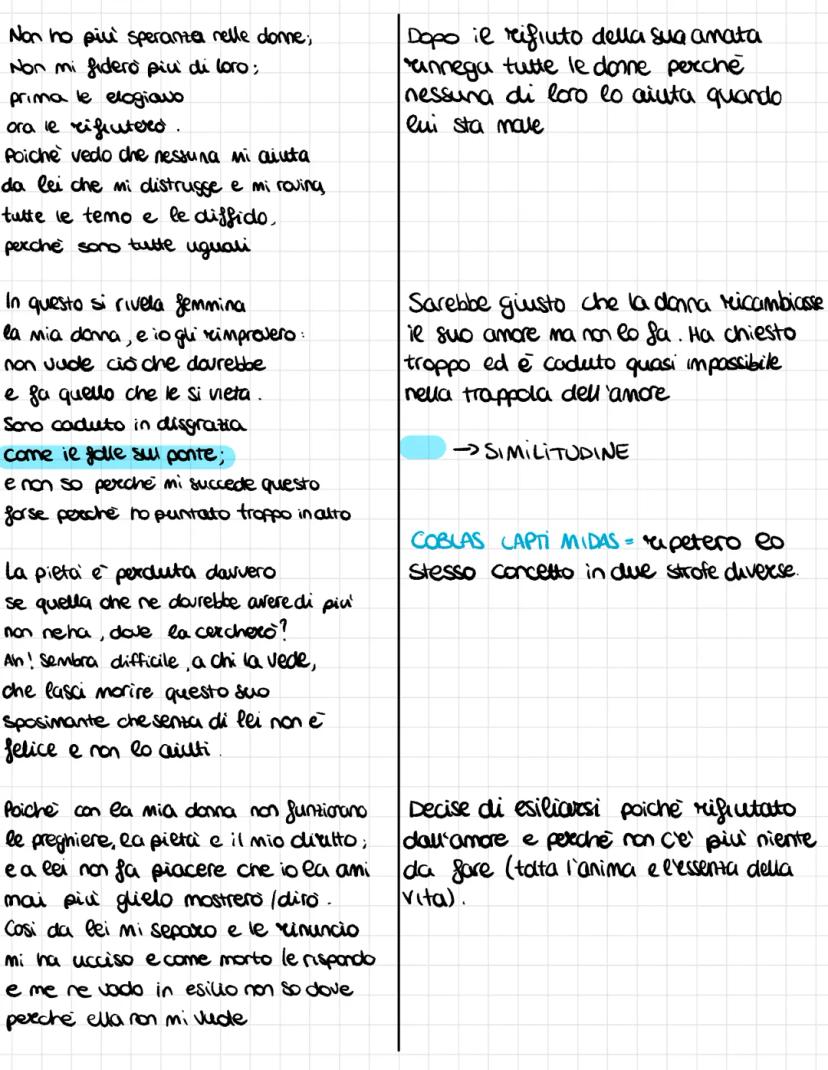 Non ho più speranza nelle donne;
Non mi fiderò più di loro;
prima le elogiavo
ora le rifiuterò.
Poichè vedo che nessuna mi aiuta
da lei che mi distrugge e mi rovina,
tutte le temo e le diffido,
perchè sono tutte uguali
Dopo il rifiuto della sua amata
rinnega tutte le donne perchè
nessuna di loro lo aiuta quando
lui sta male
In questo si rivela femmina
la mia donna, e io gli rimprovero:
non vuole ciò che dovrebbe
e fa quello che le si vieta.
Sono caduto in disgrazia
come il folle sul ponte;
e non so perchè mi succede questo
forse perchè ho puntato troppo in alto
Sarebbe giusto che la donna ricambiasse
il suo amore ma non lo fa. Ha chiesto
troppo ed è caduto quasi impossibile
nella trappola dell'amore
→ SIMILITUDINE
COBLAS CAPTI MIDAS = ripetero lo
stesso concetto in due strofe diverse.
La pietà è perduta davvero
se quella che ne dovrebbe avere di più
non ne ha, dove la cercherò?
Ah! Sembra difficile, a chi la vede,
che lasci morire questo suo
sposimante che senza di lei non è
felice e non lo aiuti.
Poichè con la mia donna non funzionano
le preghiere, la pietà e il mio diritto;
e a lei non fa piacere che io la ami
mai più glielo mostrerò / dirò.
Così da lei mi separo e le rinuncio
mi ha ucciso e come morto le rispondo
e me ne vado in esilio non so dove
perchè ella non mi vuole
Decise di esiliarsi poichè rifiutato
dall'amore e perchè non c'è più niente
da fare (tolta l'anima e l'essenza della
vita).